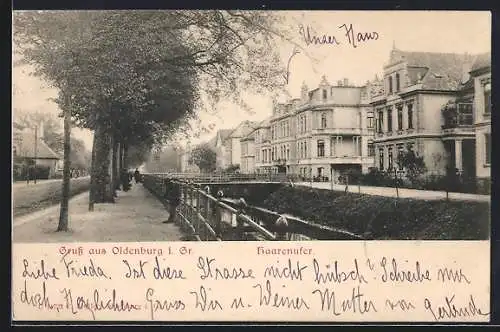 Unser Haus
Gruß aus Oldenburg i. Gr.
Haarenufer
Liebe Frieda. Ist diese Strasse nicht hübsch? Schreibe mir
doch. Herzlichen Gruss Dir u. Deiner Mutter von Gertrude